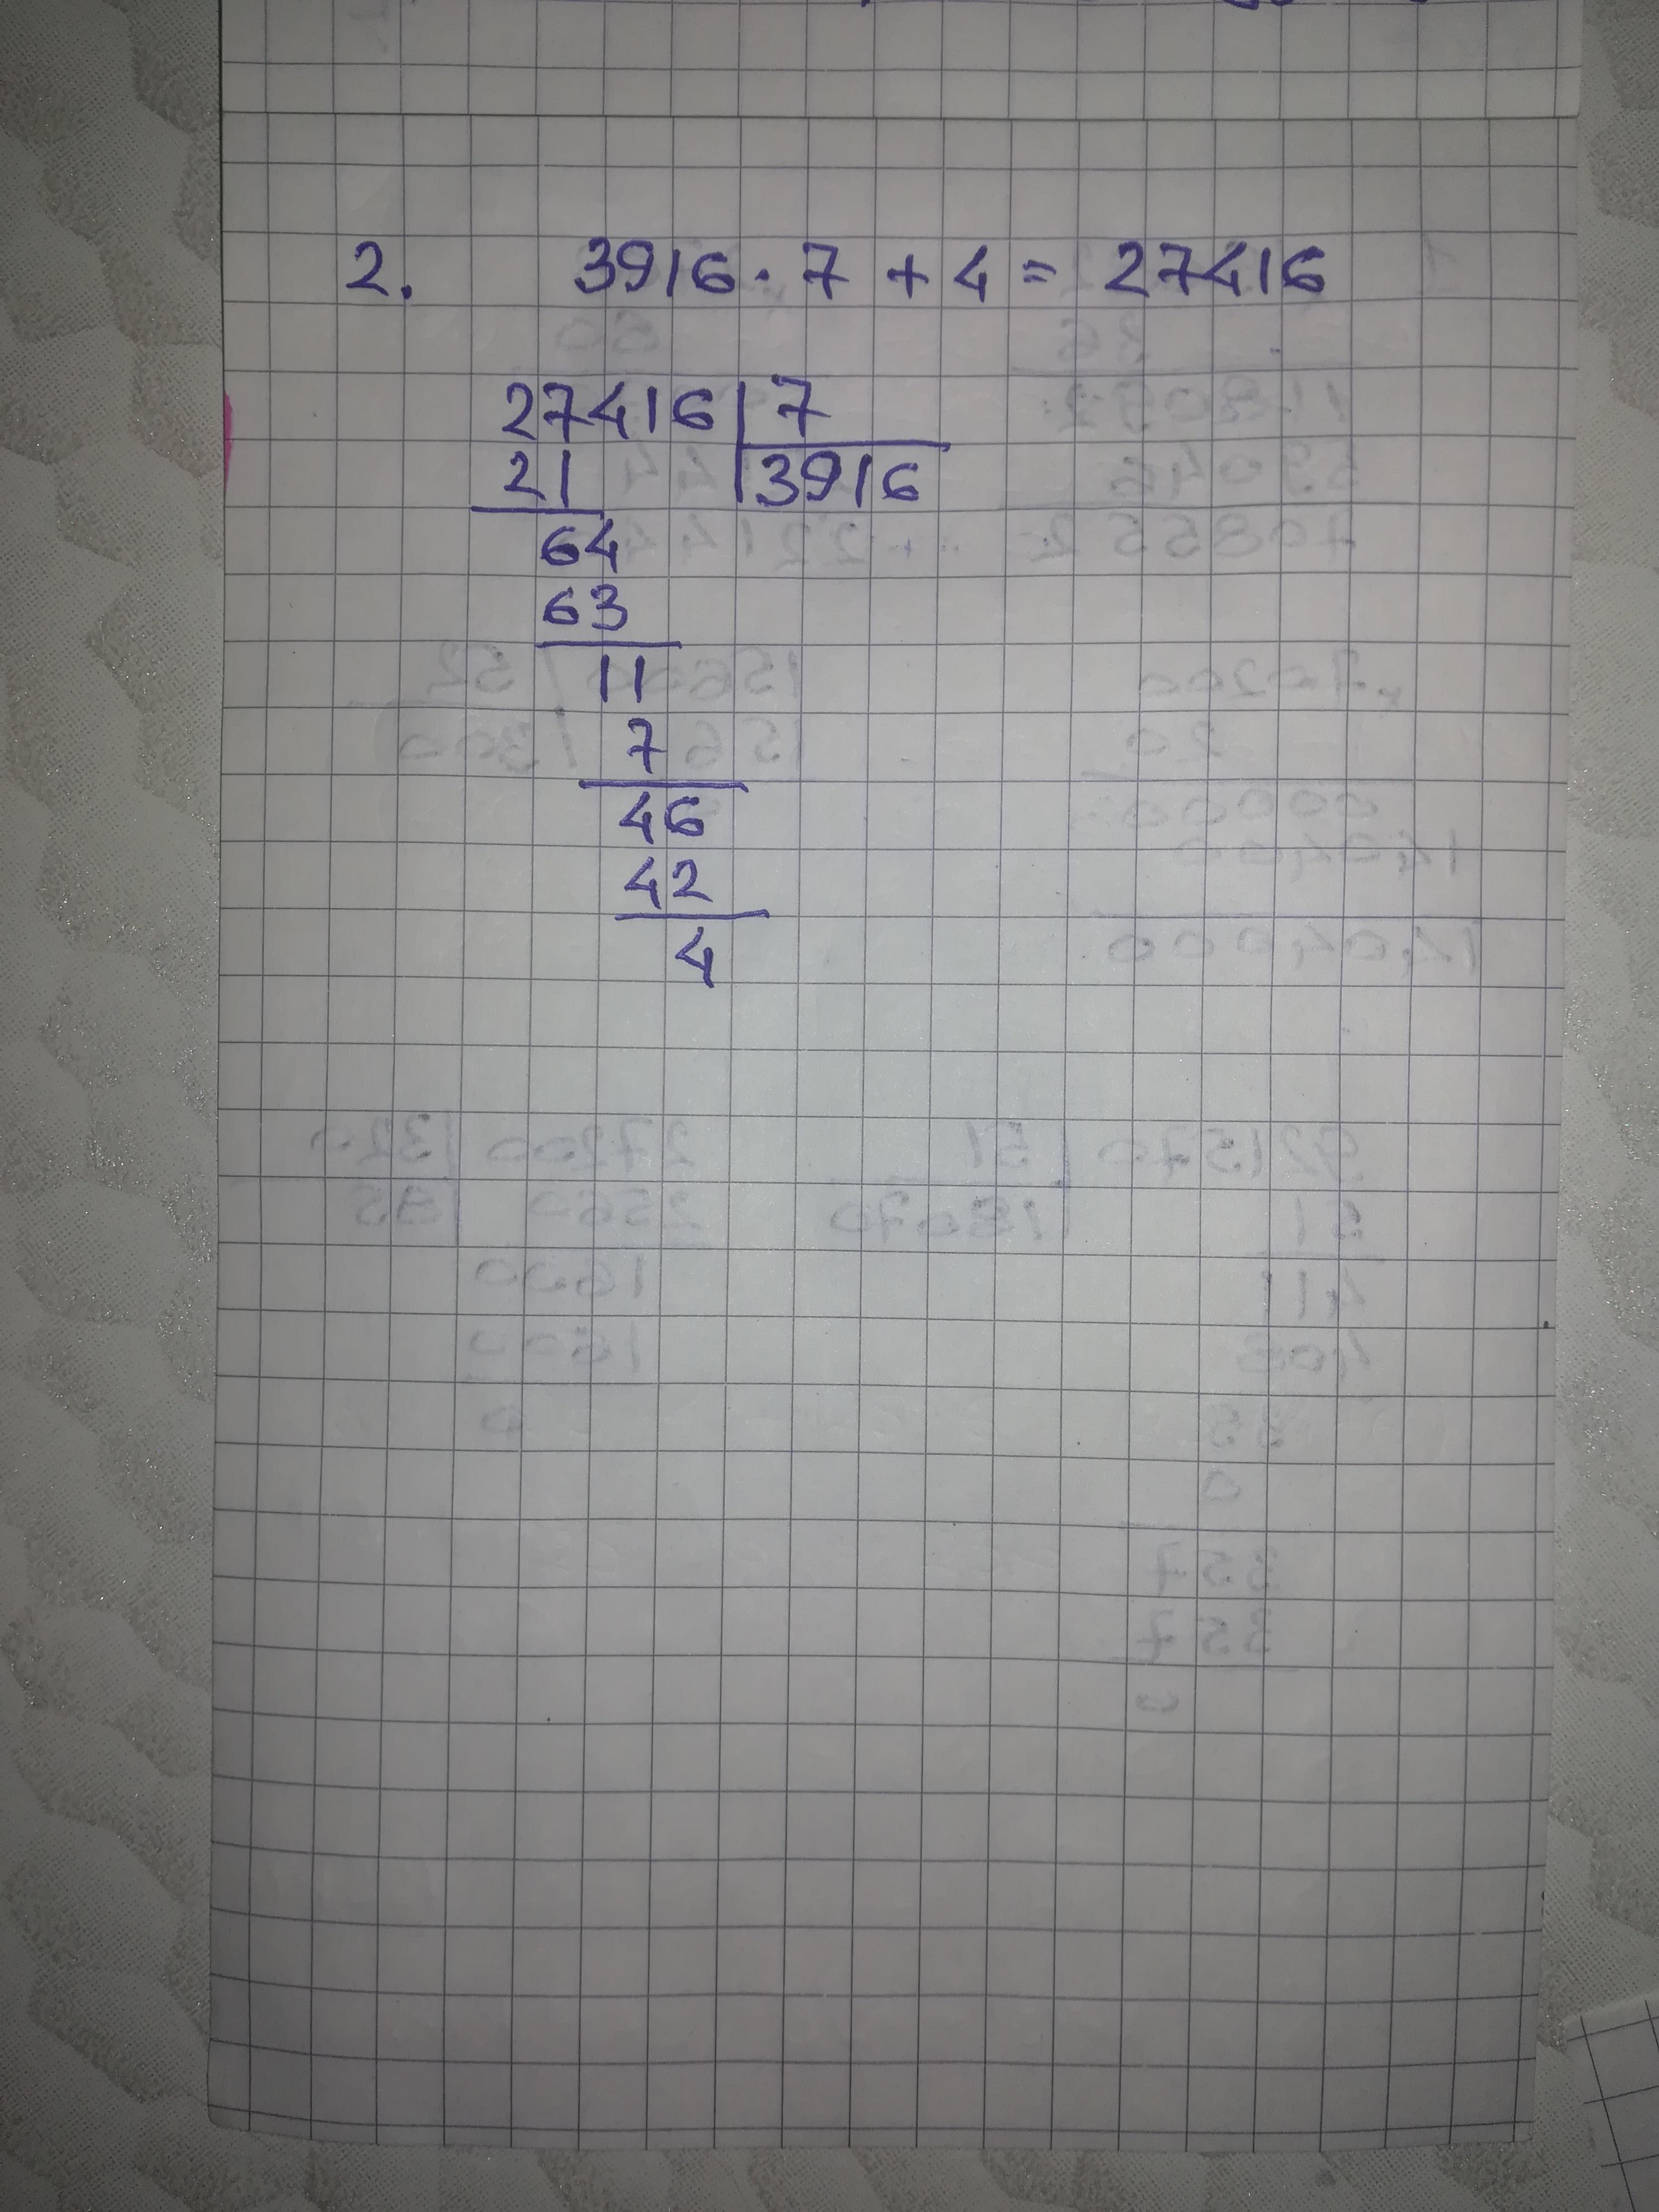 2. 3916 · 7 + 4 = 27416
27416 | 7
21 | 3916
64
63
11
7
46
42
4